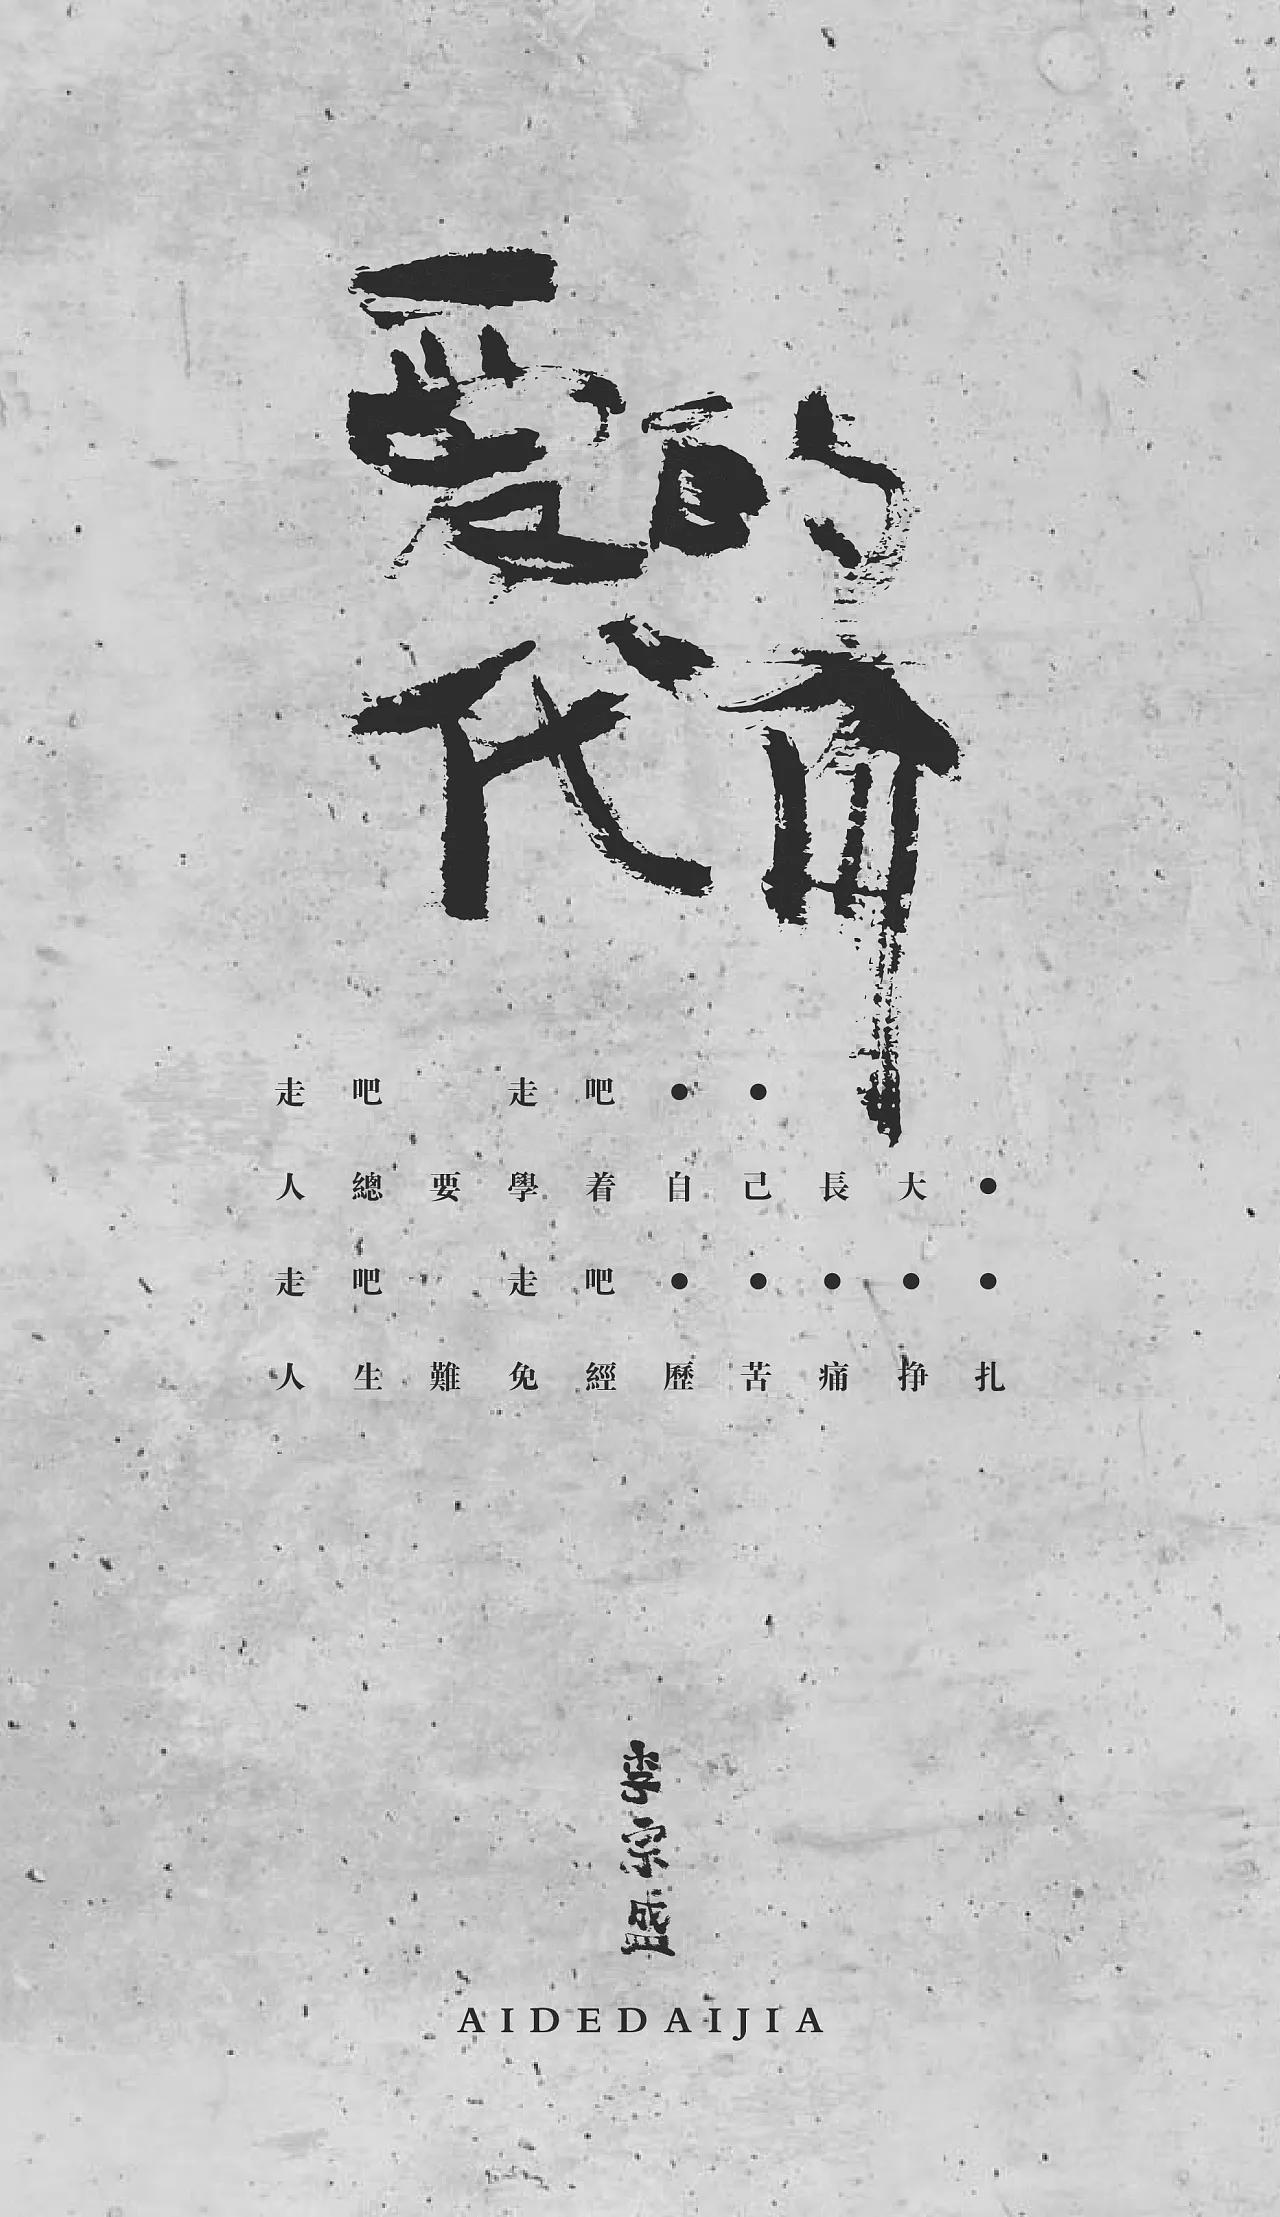 爱的
代价
走吧 走吧●●
人總要學着自己長大●
走吧 走吧●●●●●
人生難免經歷苦痛挣扎
李宗盛
AIDEDAIJIA